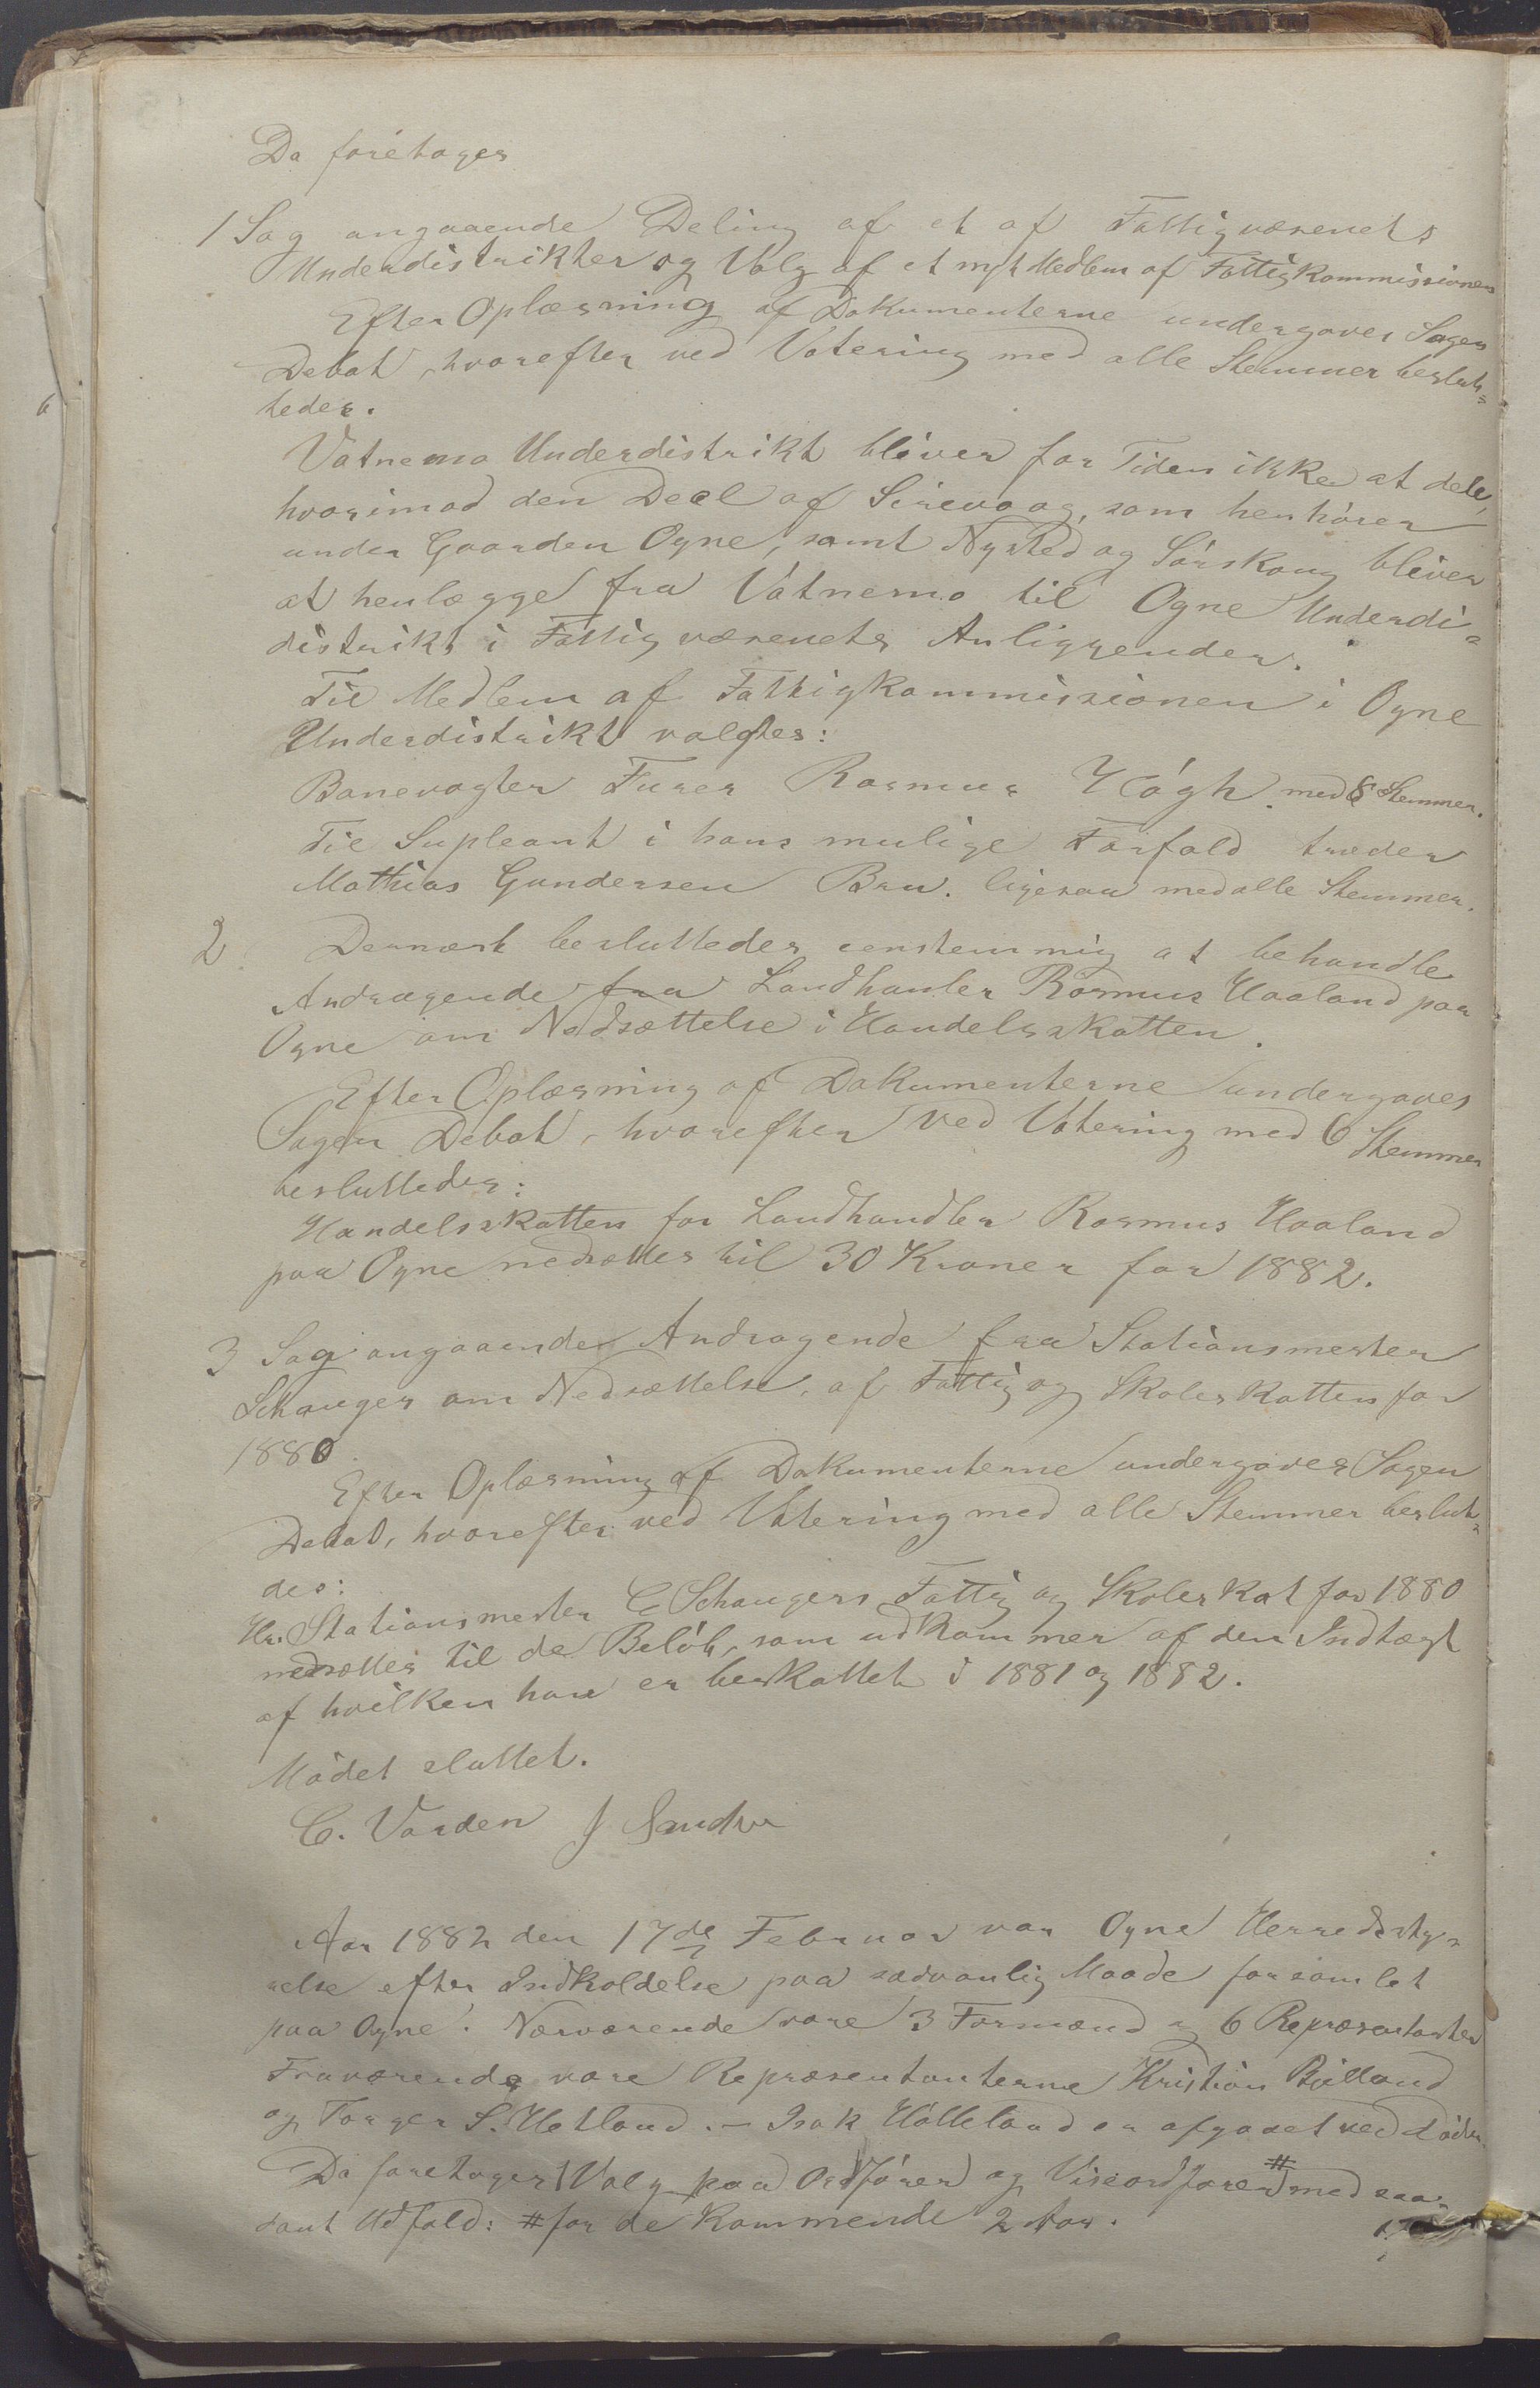 Da foretages
1 Sag angaaende Deling af et af Fattigvæsenets
Underdistrikter og Valg af et nyt Medlem af Fattigkommissionen
Efter Oplæsning af Dokumenterne undergaves Sagen
Debat, hvorefter ved Votering med alle Stemmer beslut-
tedes.
Vatnemo Underdistrikt bliver for Tiden ikke at dele,
hvorimod den Deel af Sirevaag, som henhører
under Gaarden Ogne, samt Nysted og Sørskoug bliver
at henlægge fra Vatnemo til Ogne Underdi-
distrikt i Fattigvæsenets Anliggender.
Til Medlem af Fattigkommissionen i Ogne
Underdistrikt valgtes:
Banevogter Furer Rasmus Høgh med 8 Stemmer.
Til Supleant i hans mulige Forfald træder
Mathias Gundersen Bru. ligesaa med alle Stemmer.
2 Dernæst besluttedes eenstemmig at behandle
Andragende fra Landhanler Rasmus Haaland paa
Ogne om Nedsættelse i Handelsskatten.
Efter Oplæsning af Dokumenterne undergaves
Sagen Debat, hvorefter ved Votering med 6 Stemmer
besluttedes:
Handelsskatten for Landhandler Rasmus Haaland
paa Ogne nedsættes til 30 Kroner for 1882.
3 Sag angaaende Andragende fra Stationsmester
Schanger om Nedsættelse af Fattig og Skoleskatten for
1880.
Efter Oplæsning af Dokumenterne undergaves Sagen
Debat, hvorefter ved Votering med alle Stemmer beslut-
des:
Hr. Stationsmester C Schangers Fattig og Skoleskat for 1880
nedsættes til de Beløb, som udkommer af den Indtægt
af hvilken han er beskattet i 1881 og 1882.
Mødet sluttet.
C. Varden J Sandve
Aar 1882 den 17de Februar var Ogne Herredsty-
relse efter Indkaldelse paa sædvanlig Maade forsamlet
paa Ogne. Nærværende vare 3 Formænd og 6 Repræsentanter
Fraværende vare Repræsentanterne Kristian Bjelland
og Torger S. Hetland. – Isak Hølleland er afgaaet ved Døden.
Da foretages Valg paa Ordfører og Viseordfører # med saa-
dant Udfald: # for de kommende 2 Aar.